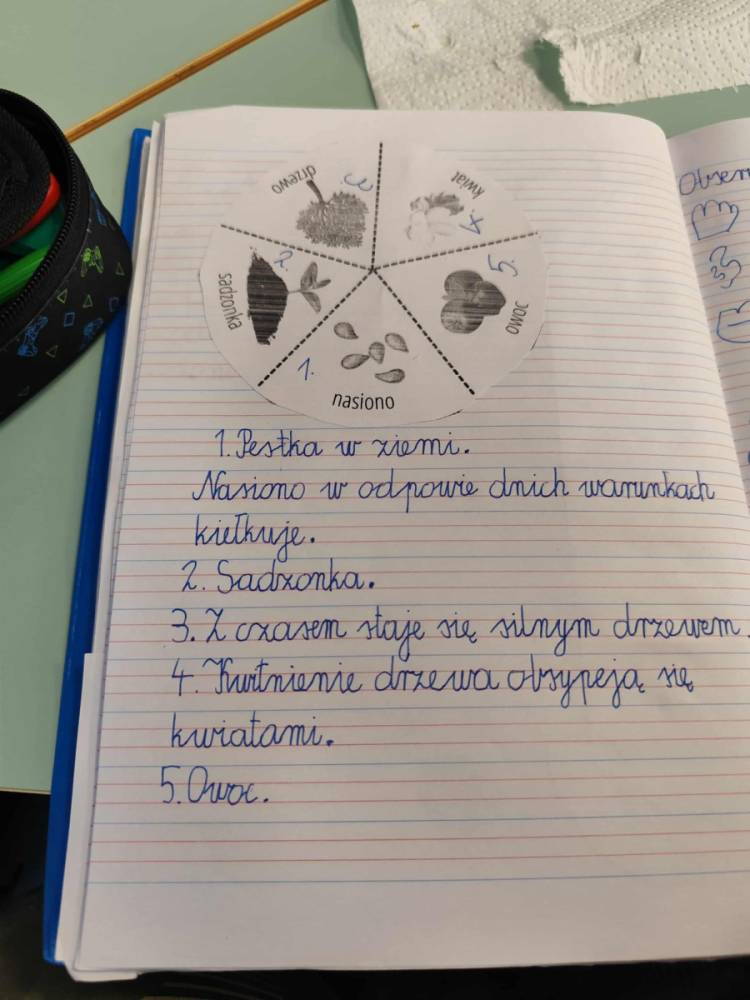 drzewo
3.
kwiat
4.
sadzonka
2.
5.
owoc
1.
nasiono
1. Pestka w ziemi.
Nasiono w odpowie dnich warunkach
kiełkuje.
2. Sadzonka.
3. Z czasem staje się silnym drzewem.
4. Kwitnienie drzewa obsypeją się
kwiatami.
5. Owoc.
Obser